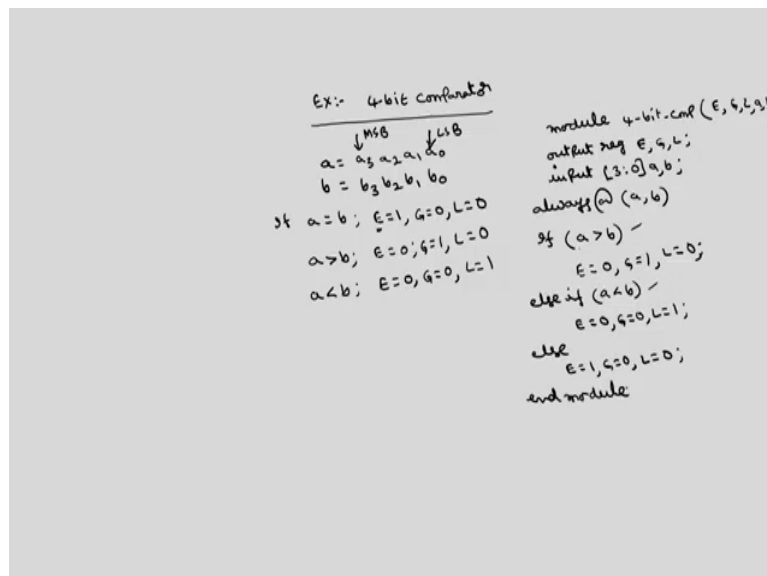 Ex:- 4-bit Comparator
↓MSB ↓LSB
a = a3 a2 a1 a0
b = b3 b2 b1 b0
If a=b; E=1, G=0, L=0
a>b; E=0; G=1, L=0
a<b; E=0, G=0, L=1
module 4-bit-comp (E, G, L, a, b
output reg E, G, L;
input [3:0] a, b;
always @ (a, b)
If (a>b)
E=0, G=1, L=0;
else if (a<b)
E=0, G=0, L=1;
else
E=1, G=0, L=0;
end module